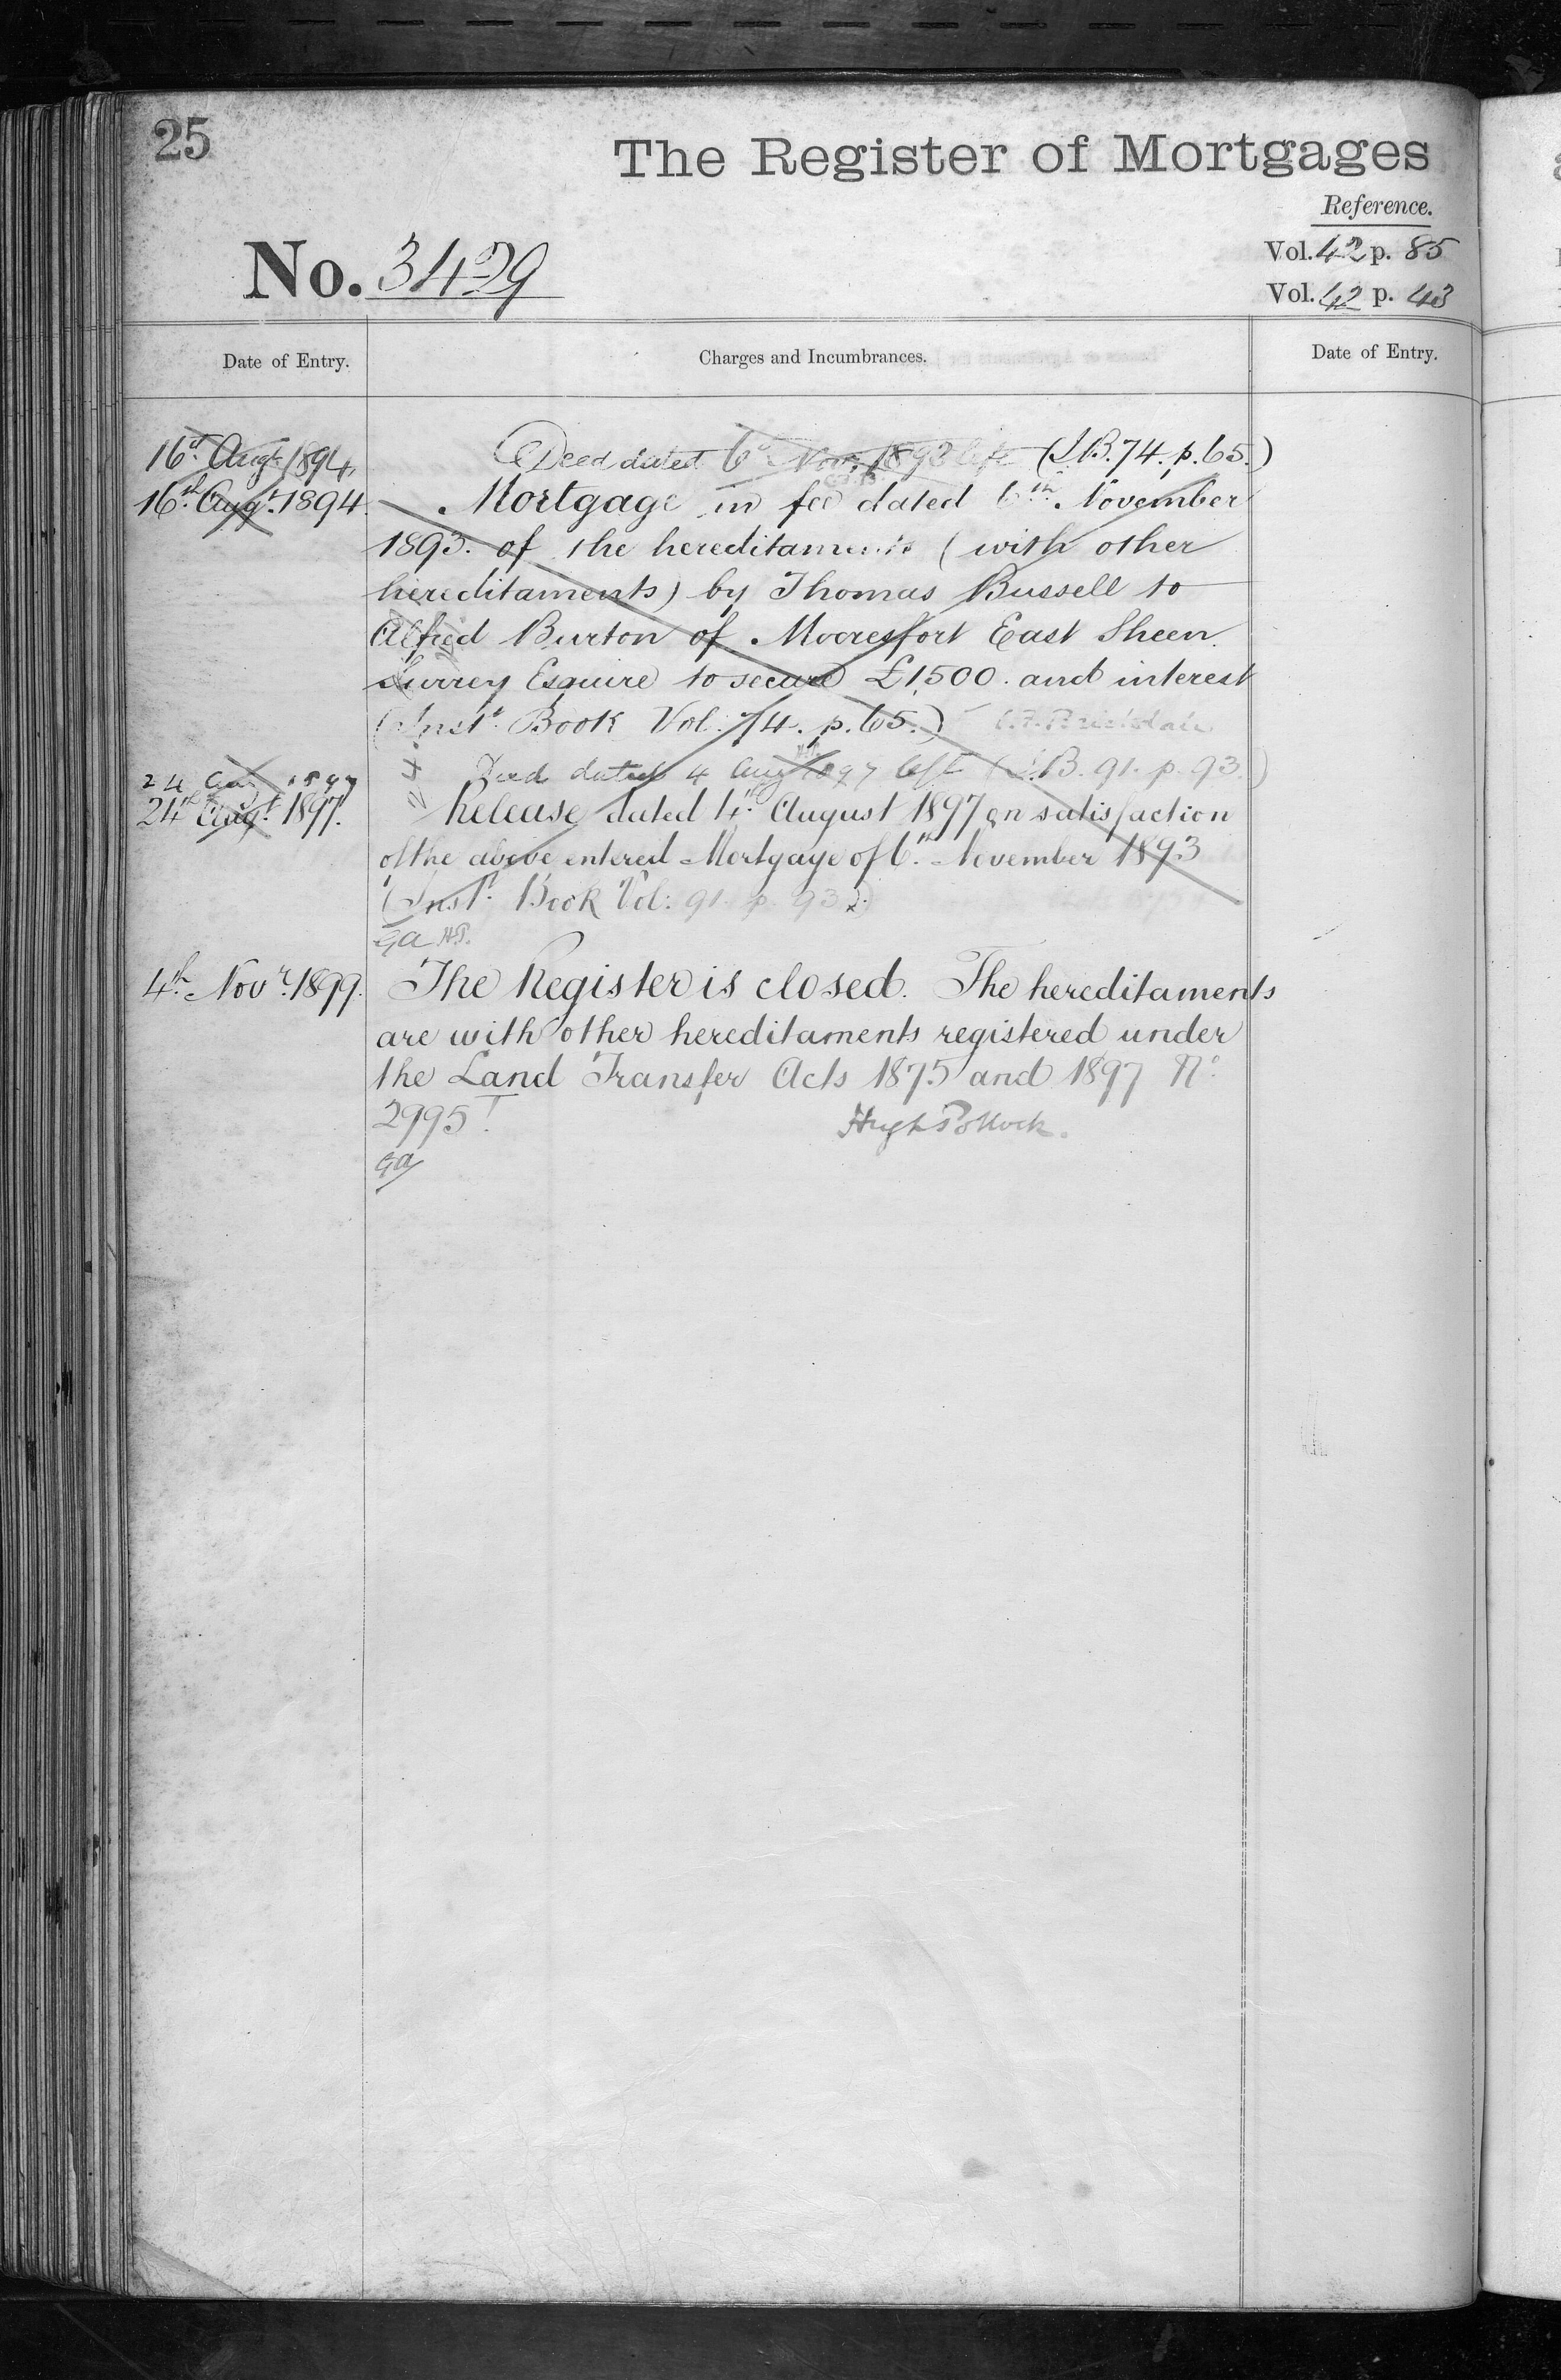 25
The Register of Mortgages
Reference.
No. 3429
Vol. 42 p. 85
Vol. 42 p. 43
Date of Entry.
Charges and Incumbrances.
Date of Entry.
16th Augt 1894
Deed dated 6th Novr. 1893 left (I.B. 74. p. 65.)
16th Augt. 1894.
Mortgage in fee dated 6th November
1893. of the hereditaments (with other
hereditaments) by Thomas Bussell to
Alfred Burton of Mooresfort East Sheen
Surrey Esquire to secure £1,500. and interest
(Inst. Book Vol. 74. p. 65.)
24 Aug 1897
Deed dated 4 Aug 1897 left (I.B. 91. p. 93.)
24th Augt. 1897.
Release dated 4th August 1897 on satisfaction
of the above entered Mortgage of 6th November 1893
(Inst. Book Vol: 91. p. 93.)
GA H.P.
4th Novr. 1899.
The Register is closed. The hereditaments
are with other hereditaments registered under
the Land Transfer Acts 1875 and 1897 No.
2995
Hugh Pollock.
GA